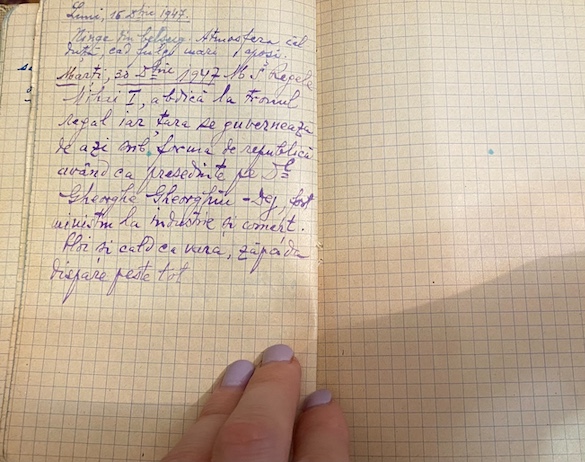 Luni, 15 Dbrie 1947.
Ninge din belșug. Atmosfera cal
duță cad fulgi mari, apoși.
Marți, 30 Dbrie 1947 M. S. Regele
Mihai I, abdică la tronul
regal iar țara se guvernează
de azi sub forma de republică
având ca președinte pe Dl
Gheorghe Gheorghiu-Dej, fost
ministru la industrie și comerț.
Ploi și cald ca vara, zăpada
dispare peste tot